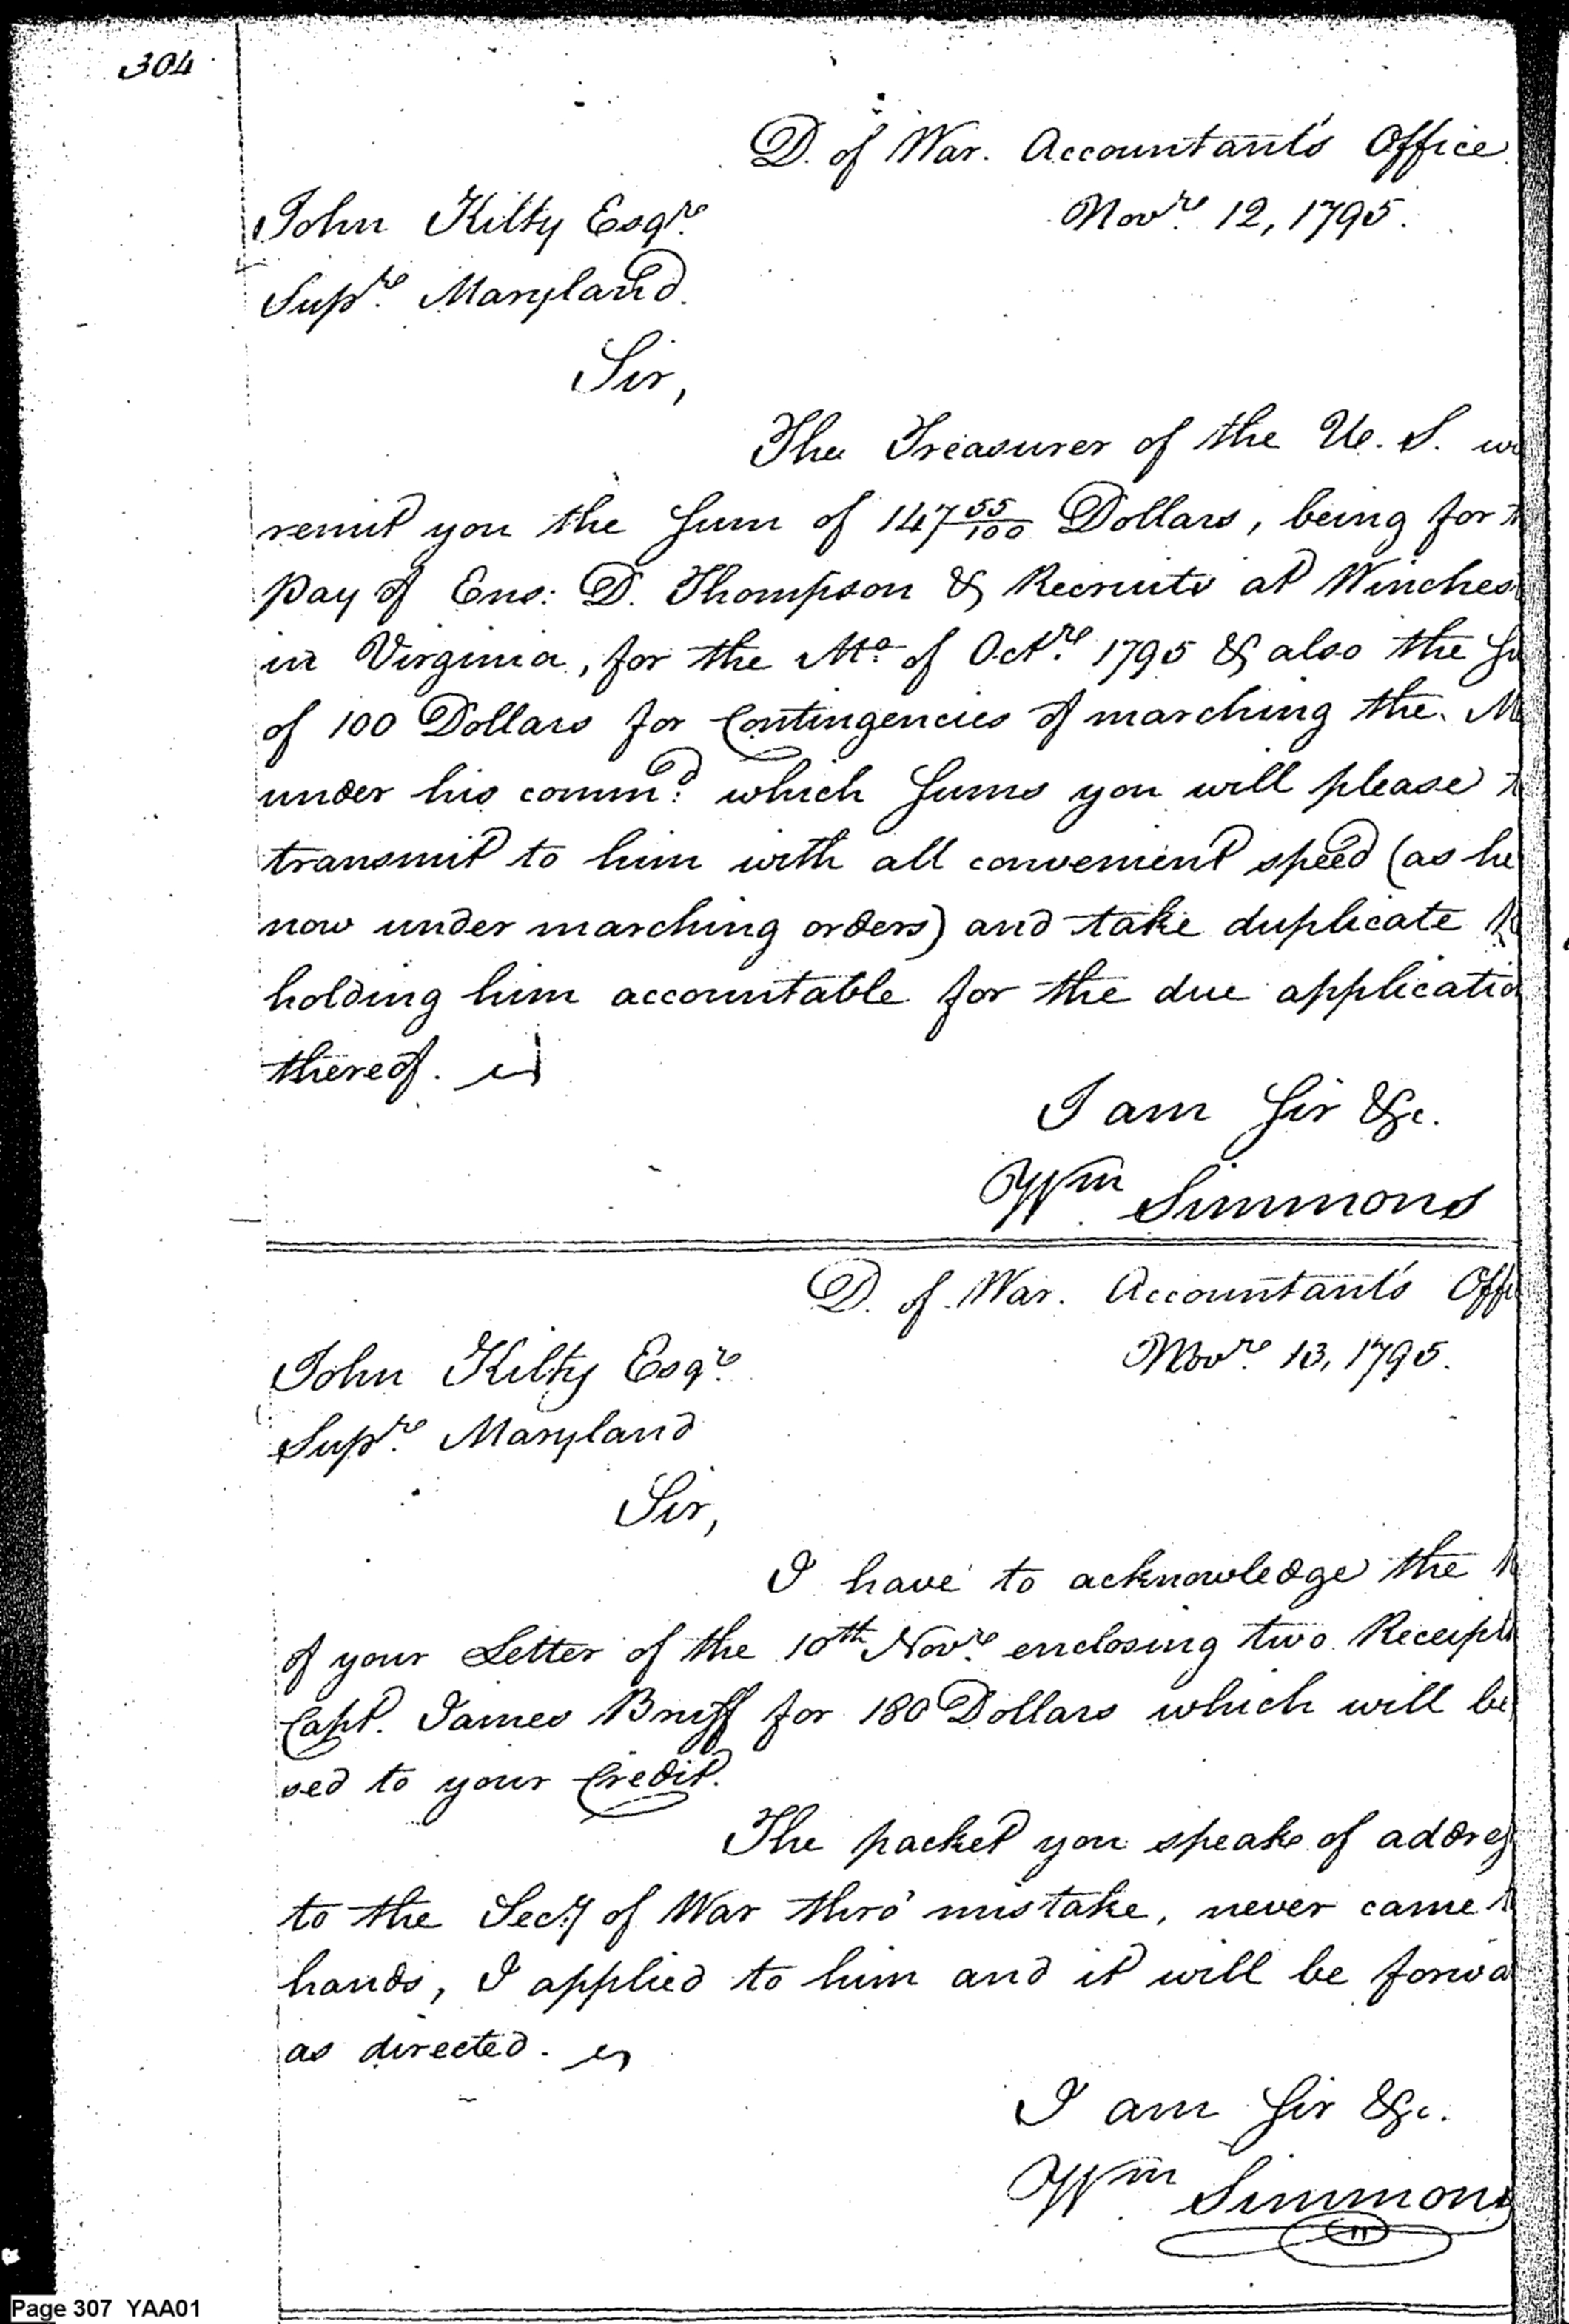 304
D. of War. Accountant's Office
Novre 12, 1795.
John Kilty Esqre
Supre Maryland.
Sir,
The Treasurer of the U. S. w
remit you the Sum of 147 55/100 Dollars, being for
pay of Ens: D. Thompson & Recruits at Winches
in Virginia, for the Mo. of Octre 1795 & also the Su
of 100 Dollars for Contingencies of marching the M
under his commd. which Sums you will please t
transmit to him with all convenient speed (as he
now under marching orders) and take duplicate R
holding him accountable for the due applicatio
thereof.
I am Sir &c.
Wm Simmons
D. of War. Accountant's Offi
Novre 13, 1795.
John Kilty Esqre
Supre Maryland
Sir,
I have to acknowledge the
of your Letter of the 10th Novre enclosing two Receipts
Capt. James Bruff for 180 Dollars which will be
sed to your Credit.
The packet you speak of addres
to the Secy of War thro' mistake, never came t
hands, I applied to him and it will be forwa
as directed.
I am Sir &c.
Wm Simmons
Page 307 YAA01